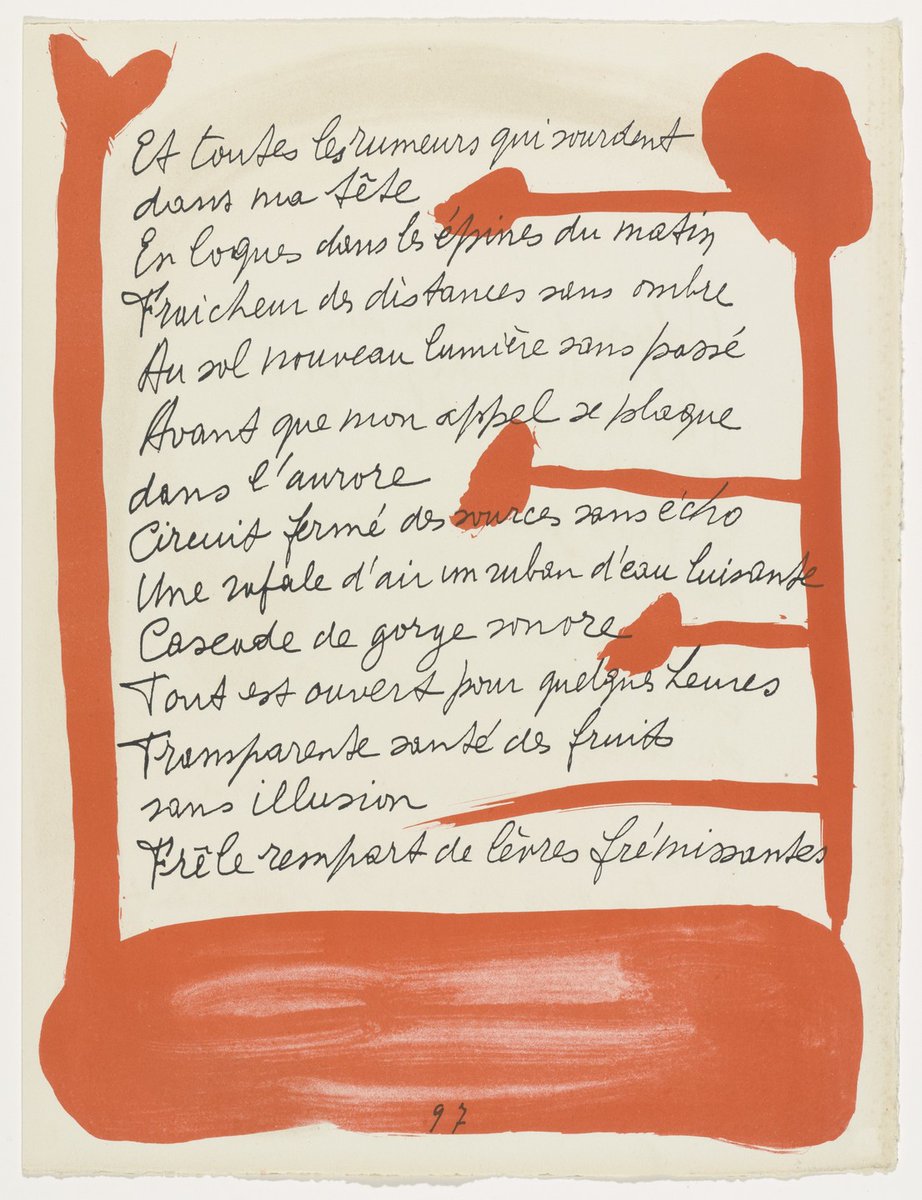 Et toutes les rumeurs qui sourdent
dans ma tête
En loques dans les épines du matin
Fraicheur des distances sans ombre
Au sol nouveau lumière sans passé
Avant que mon appel se plaque
dans l'aurore
Circuit fermé des sources sans écho
Une rafale d'air un ruban d'eau luisante
Cascade de gorge sonore
Tout est ouvert pour quelques heures
Transparente santé des fruits
sans illusion
Frêle rempart de lèvres frémissantes
97